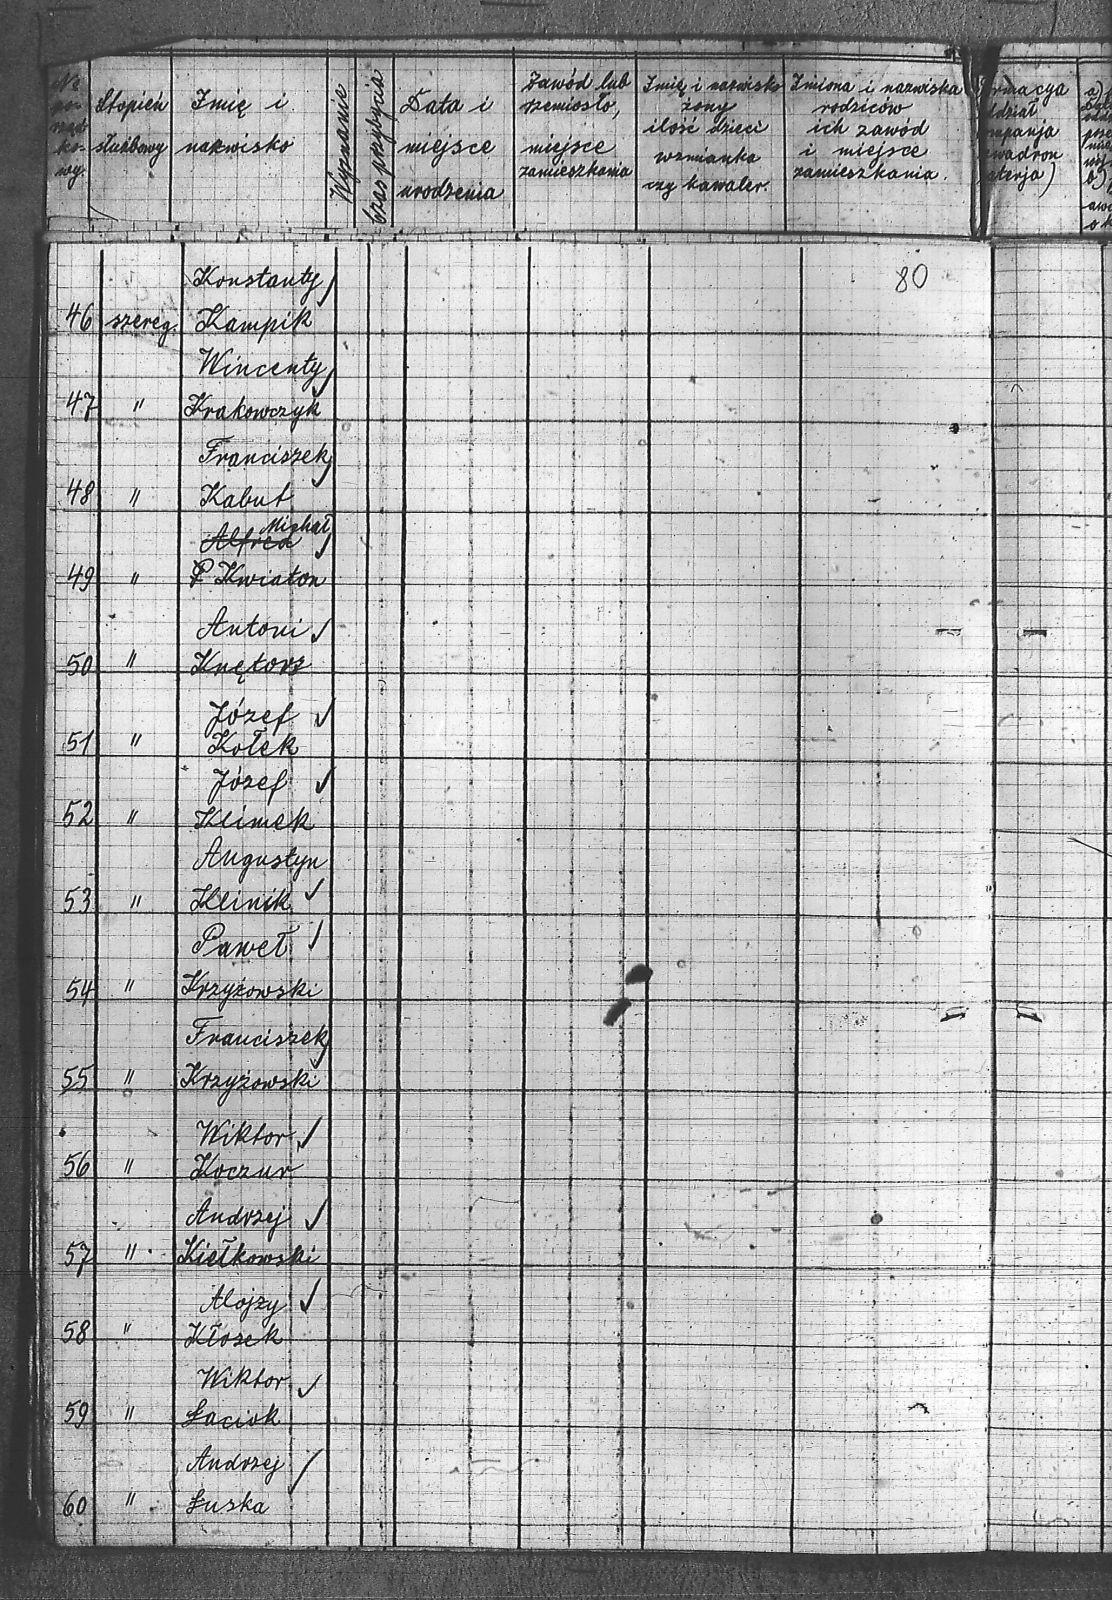 № po- rząd- ko- wy.
Stopień służbowy
Imię i nazwisko
Wyznanie
Czas przybycia
Data i miejsce urodzenia
Zawód lub rzemiosło, miejsce zamieszkania
Imię i nazwisko żony ilość dzieci wzmianka czy kawaler.
Imiona i nazwiska rodziców ich zawód i miejsce zamieszkania.
80
Konstanty
46 szereg. Kampik
Wincenty
47 " Krakowczyk
Franciszek
48 " Kabut
Michał
Alfred
49 " P Kwiaton
Antoni
50 " Knętorz
Józef
51 " Kołek
Józef
52 " Klimek
Augustyn
53 " Klinik
Paweł
54 " Krzyżowski
Franciszek
55 " Krzyżowski
Wiktor
56 " Koczur
Andrzej
57 " Kiełkowski
Alojzy
58 " Kłosek
Wiktor
59 " Łaciok
Andrzej
60 " Łuska